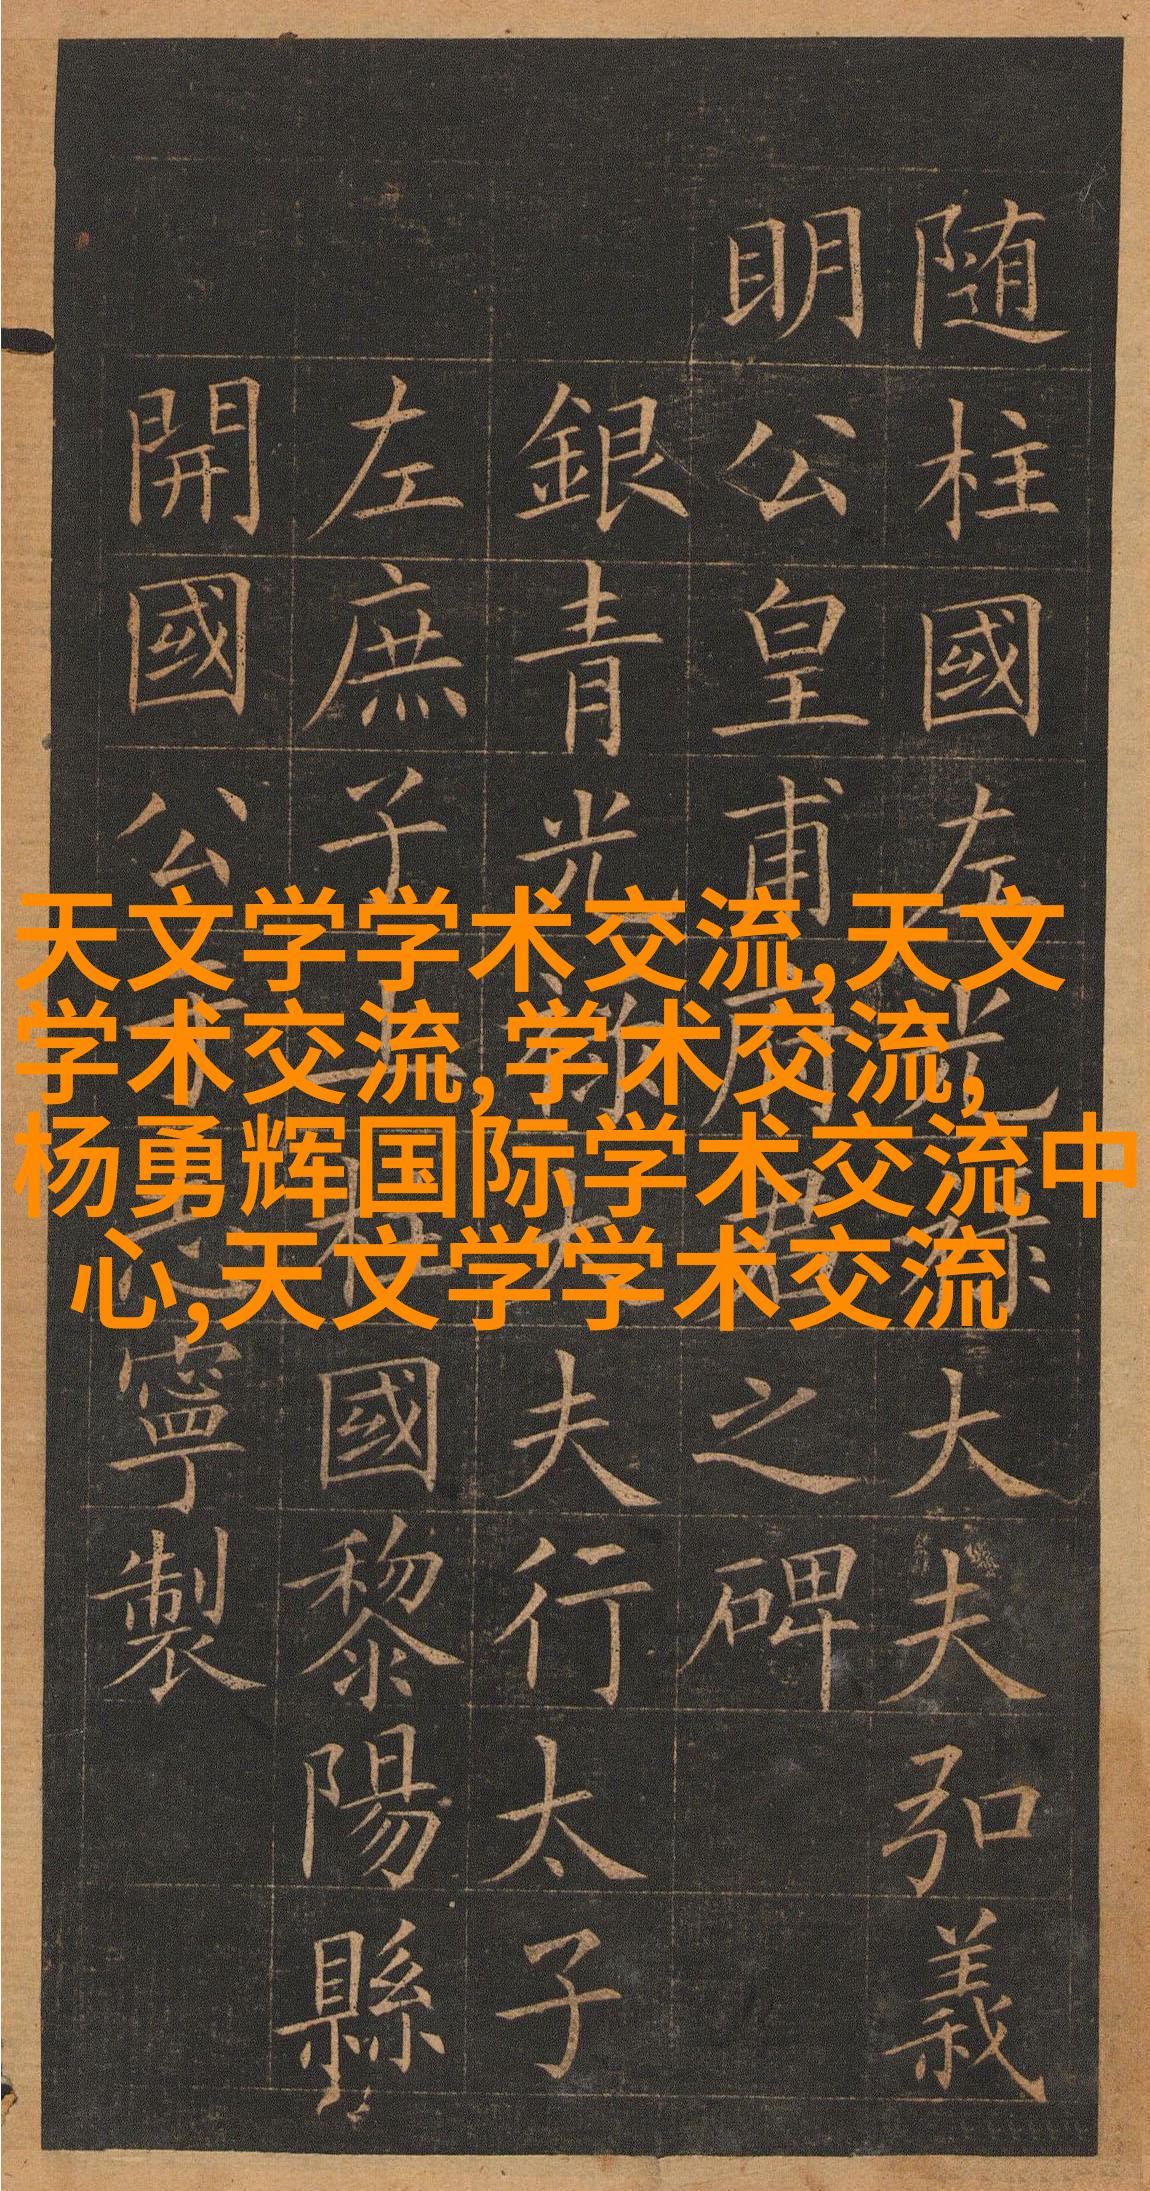 随柱國左光祿大夫弘義
明公皇甫府君之碑
銀青光祿大夫行太子
左庶子上柱國黎陽縣
開國公于志寧製
天文学学术交流,天文
学术交流,学术交流,
杨勇辉国际学术交流中
心,天文学学术交流